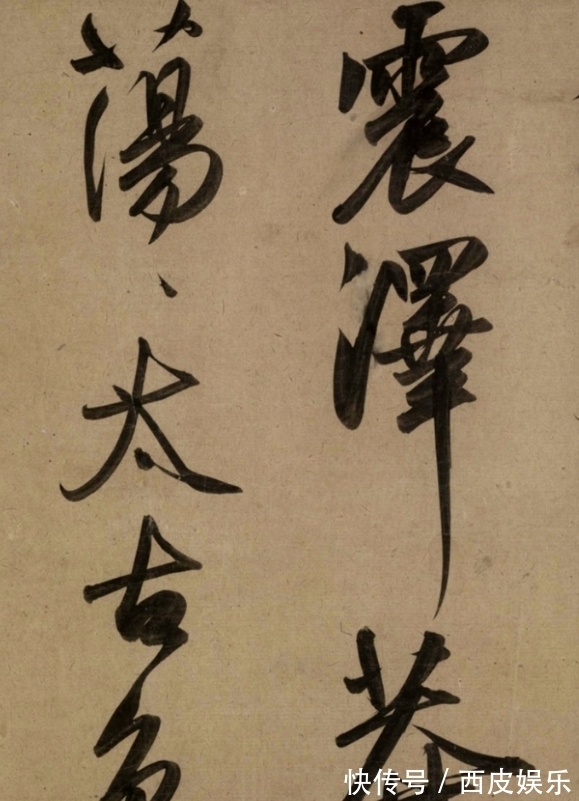 震澤
蕩〻太古
快传号 / 西皮娱乐